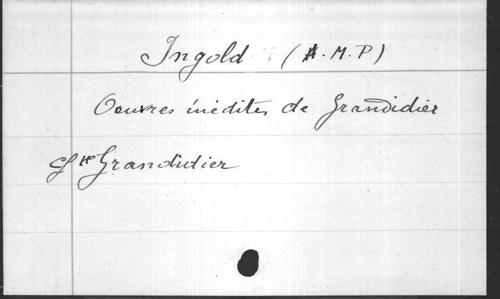 Ingold (A.M.P)
Oeuvres inédites de Grandidier
Grandidier